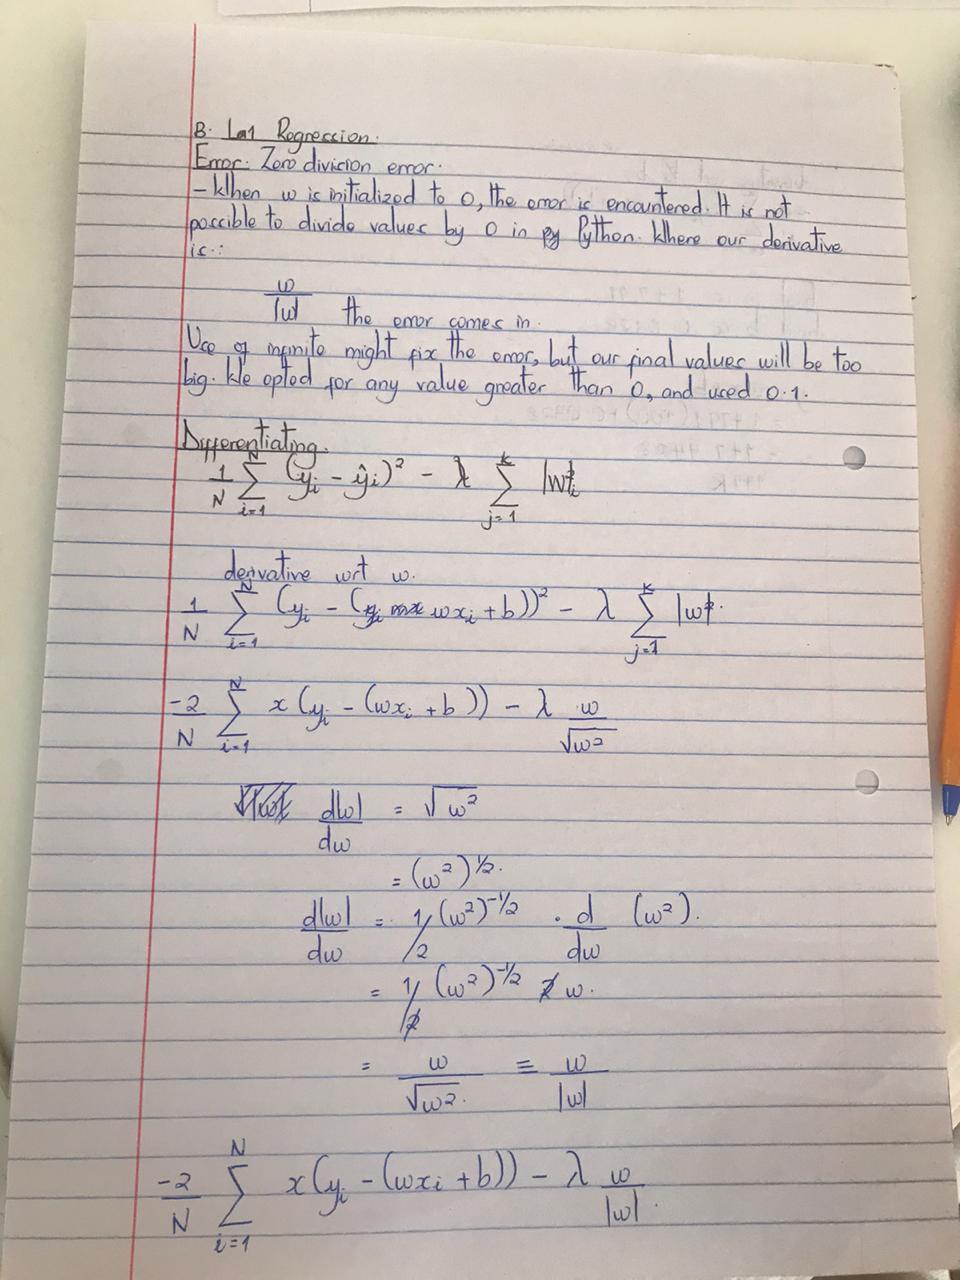 B. La1 Regression.
Error: Zero division error.
- When w is initialized to 0, the error is encountered. It is not
possible to divide values by 0 in Python. Where our derivative
is.:
w/|w| the error comes in.
Use of infinite might fix the error, but our final values will be too
big. We opted for any value greater than 0, and used 0.1.
Differentiating.
1/N Σ_{i=1}^{N} (y_i - ŷ_i)² - λ Σ_{j=1}^{k} |w|
derivative wrt w.
1/N Σ_{i=1}^{N} (y_i - (wx_i + b))² - λ Σ_{j=1}^{k} |w|.
-2/N Σ_{i=1}^{N} x(y_i - (wx_i + b)) - λ w/√w²
d|w|/dw = √w²
= (w²)^{1/2}.
d|w|/dw = 1/2 (w²)^{-1/2} . d/dw (w²).
= 1/2 (w²)^{-1/2} 2 w.
= w/√w². ≡ w/|w|
-2/N Σ_{i=1}^{N} x(y_i - (wx_i + b)) - λ w/|w|.